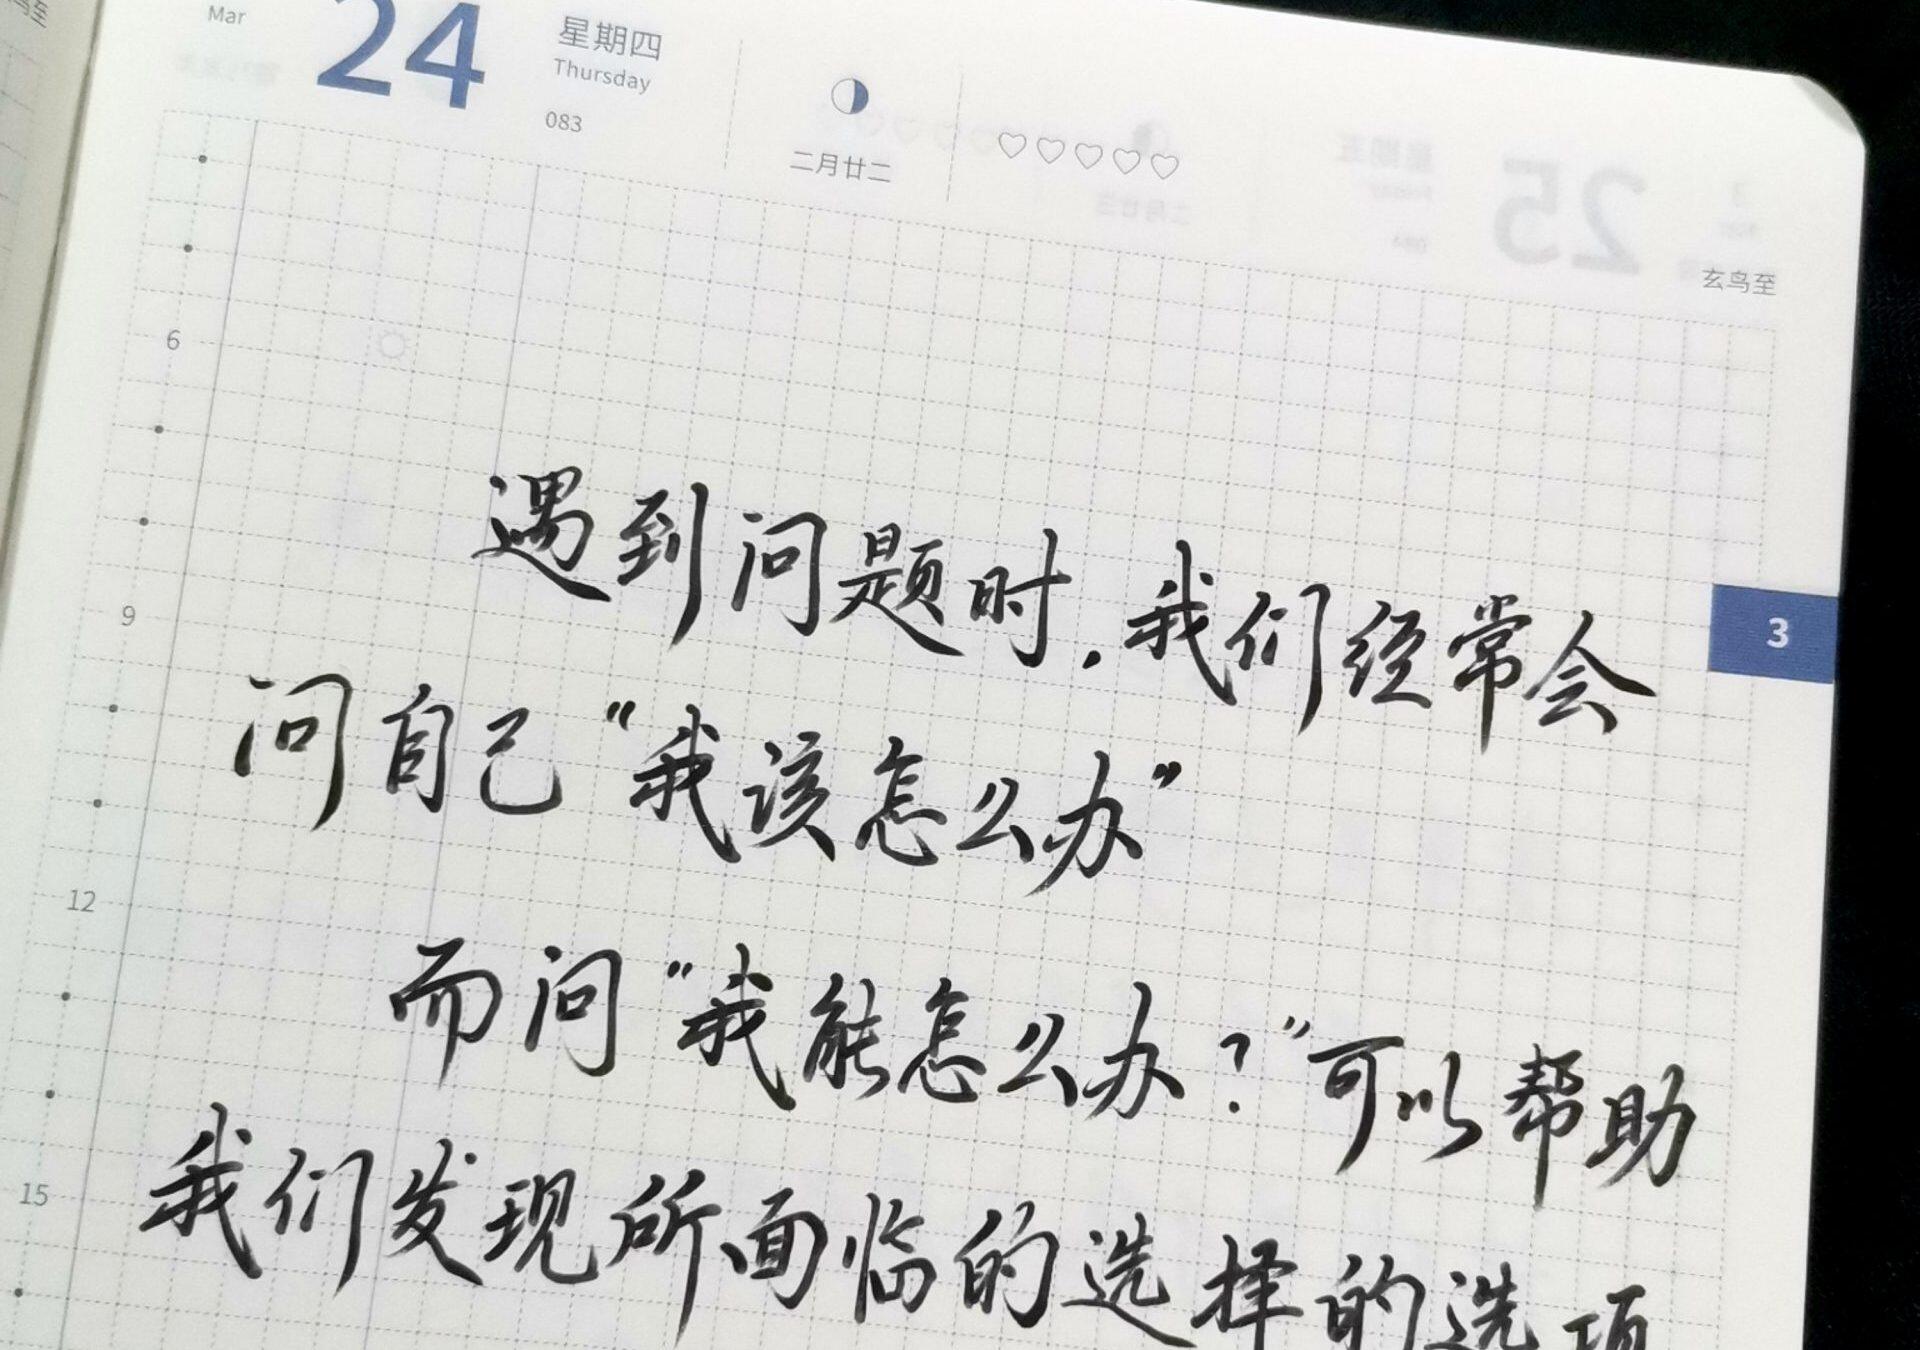 Mar
24
星期四
Thursday
083
二月廿二
玄鸟至
3
6
9
12
15
遇到问题时,我们经常会
问自己“我该怎么办”
而问“我能怎么办?”可以帮助
我们发现所面临的选择的选项